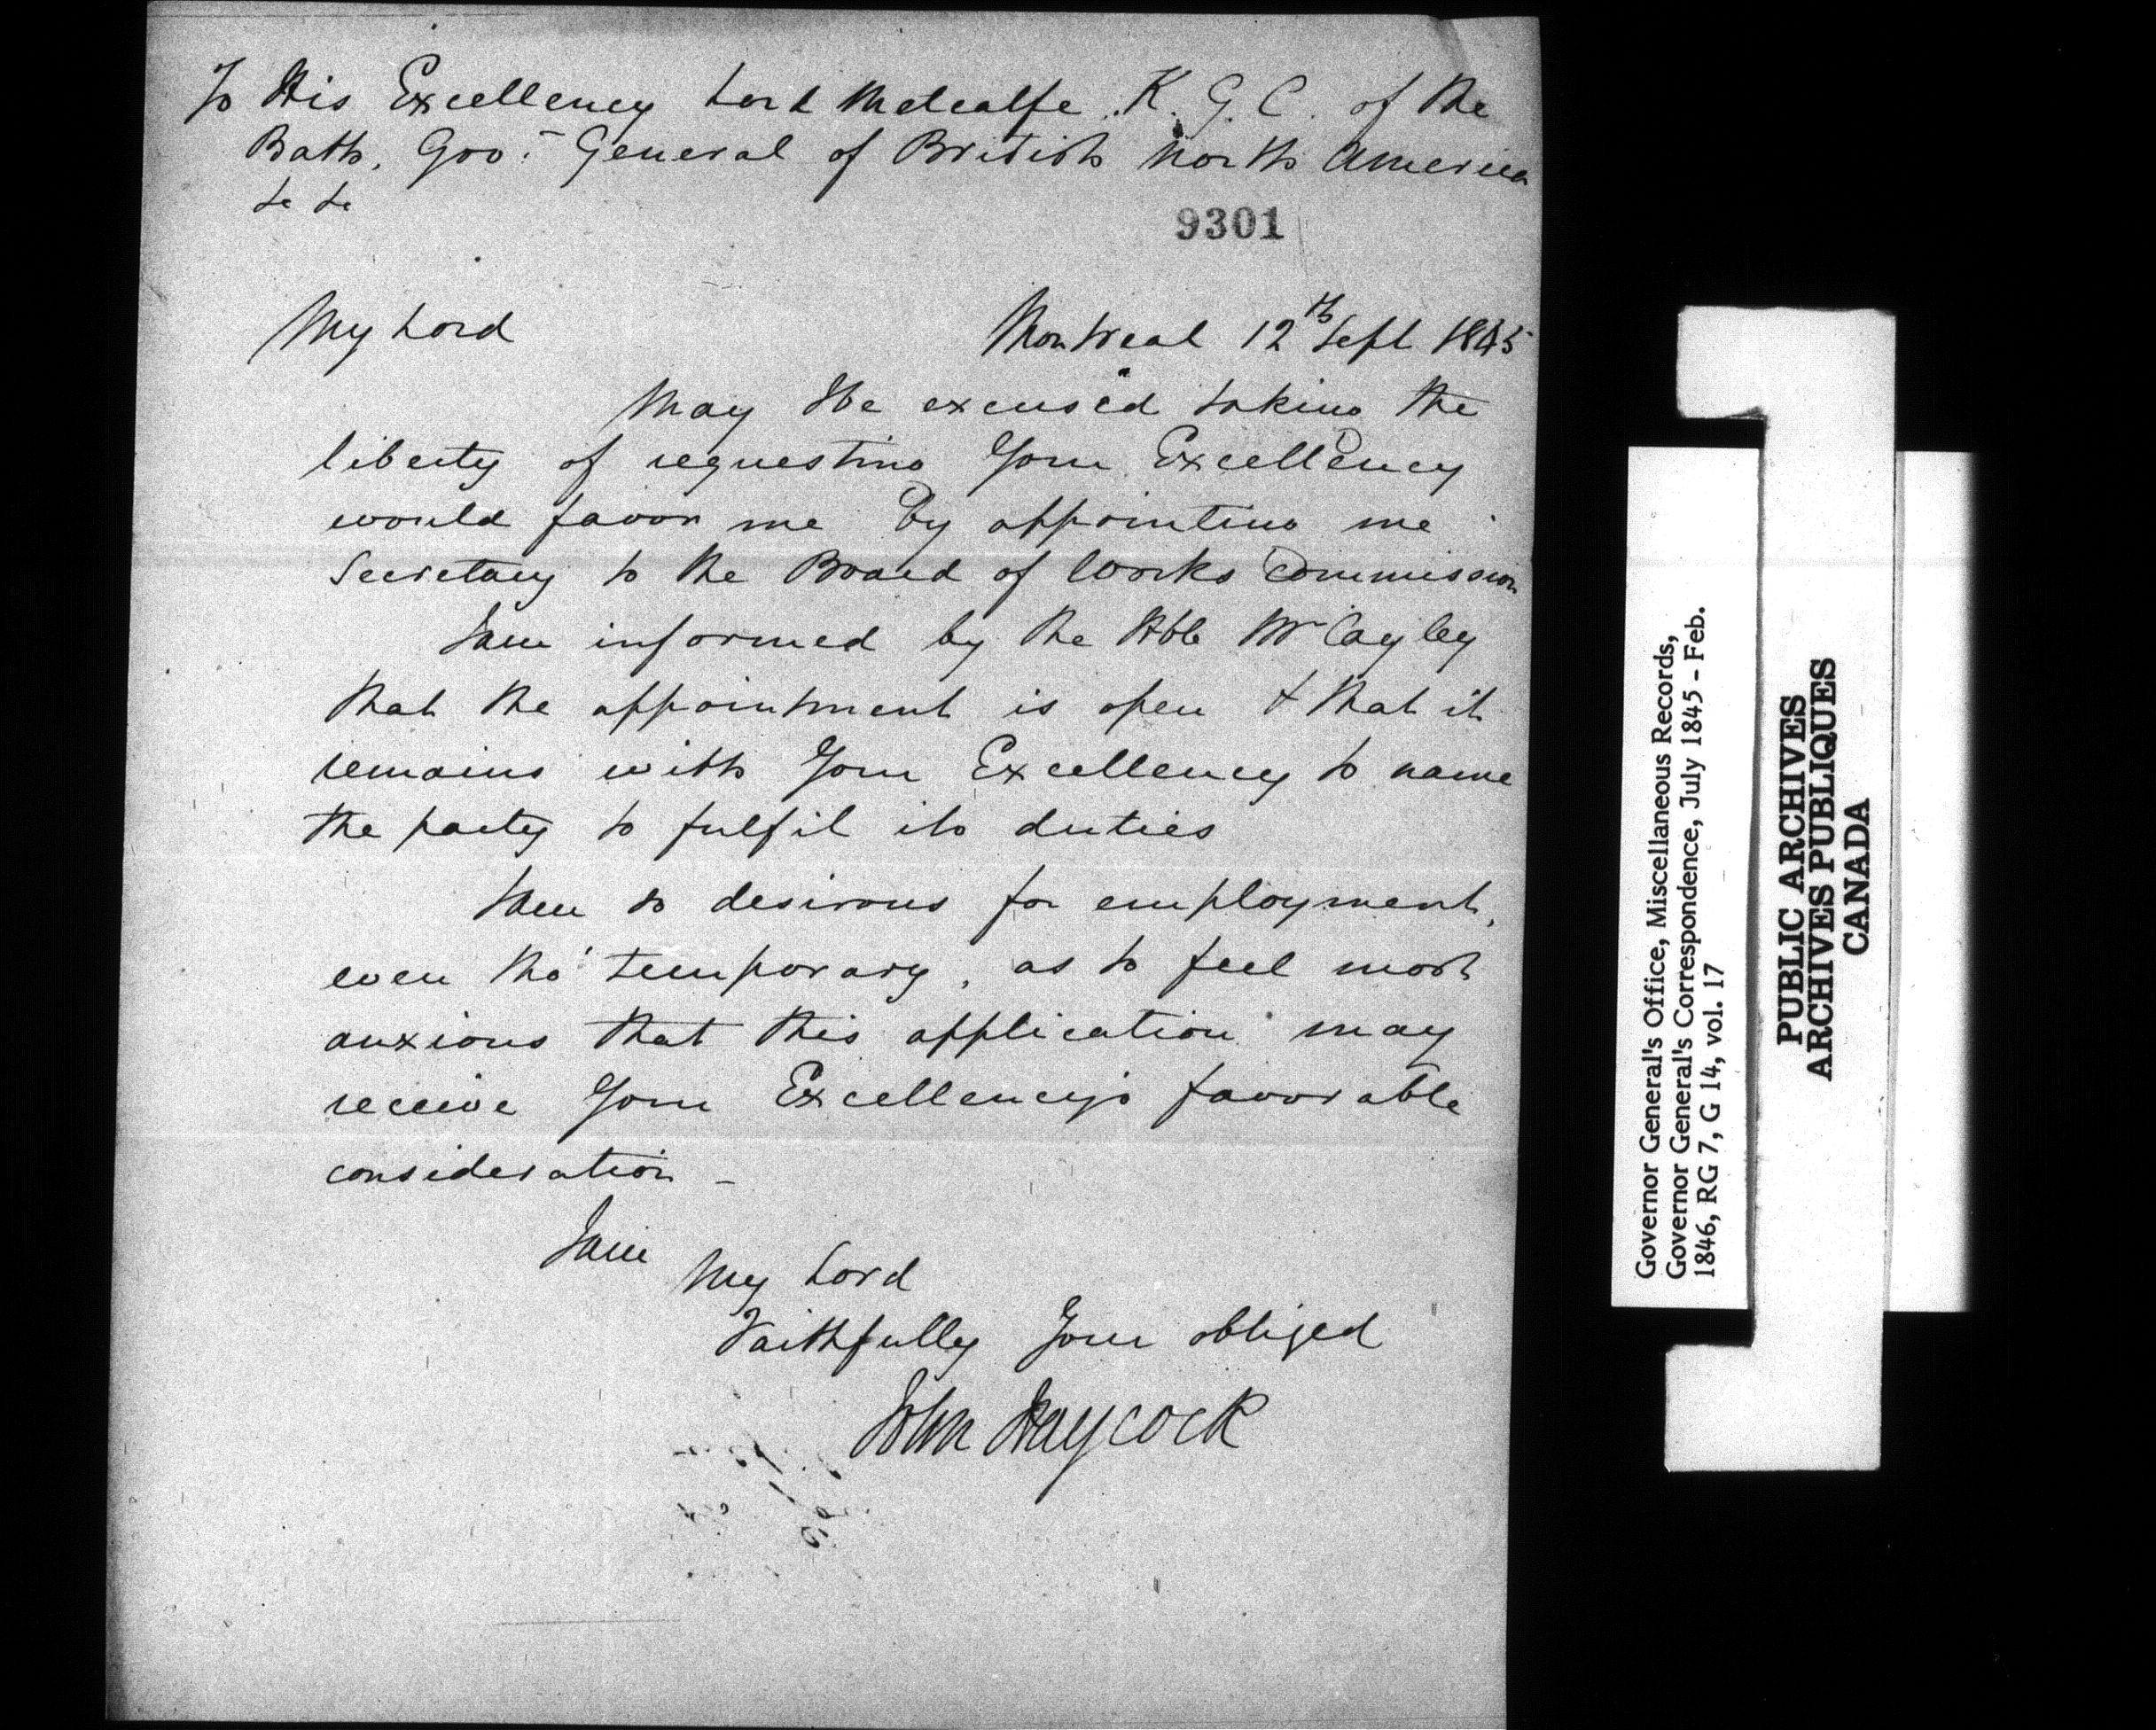 To His Excellency Lord Metcalfe K. G. C. of the
Bath, Gov.r General of British North America
&c &c
9301
My Lord
Montreal 12th Sept 1845
May I be excused taking the
liberty of requesting Your Excellency
would favor me by appointing me
Secretary to the Board of Works Commission
I am informed by the Hble Mr Cayley
that the appointment is open & that it
remains with Your Excellency to name
the party to fulfil its duties
I am so desirous for employment,
even tho' temporary, as to feel most
anxious that this application may
receive Your Excellency's favorable
consideration -
I am
My Lord
Faithfully Your obliged
John Haycock
Governor General's Office, Miscellaneous Records,
Governor General's Correspondence, July 1845 - Feb.
1846, RG 7, G 14, vol. 17
PUBLIC ARCHIVES
ARCHIVES PUBLIQUES
CANADA